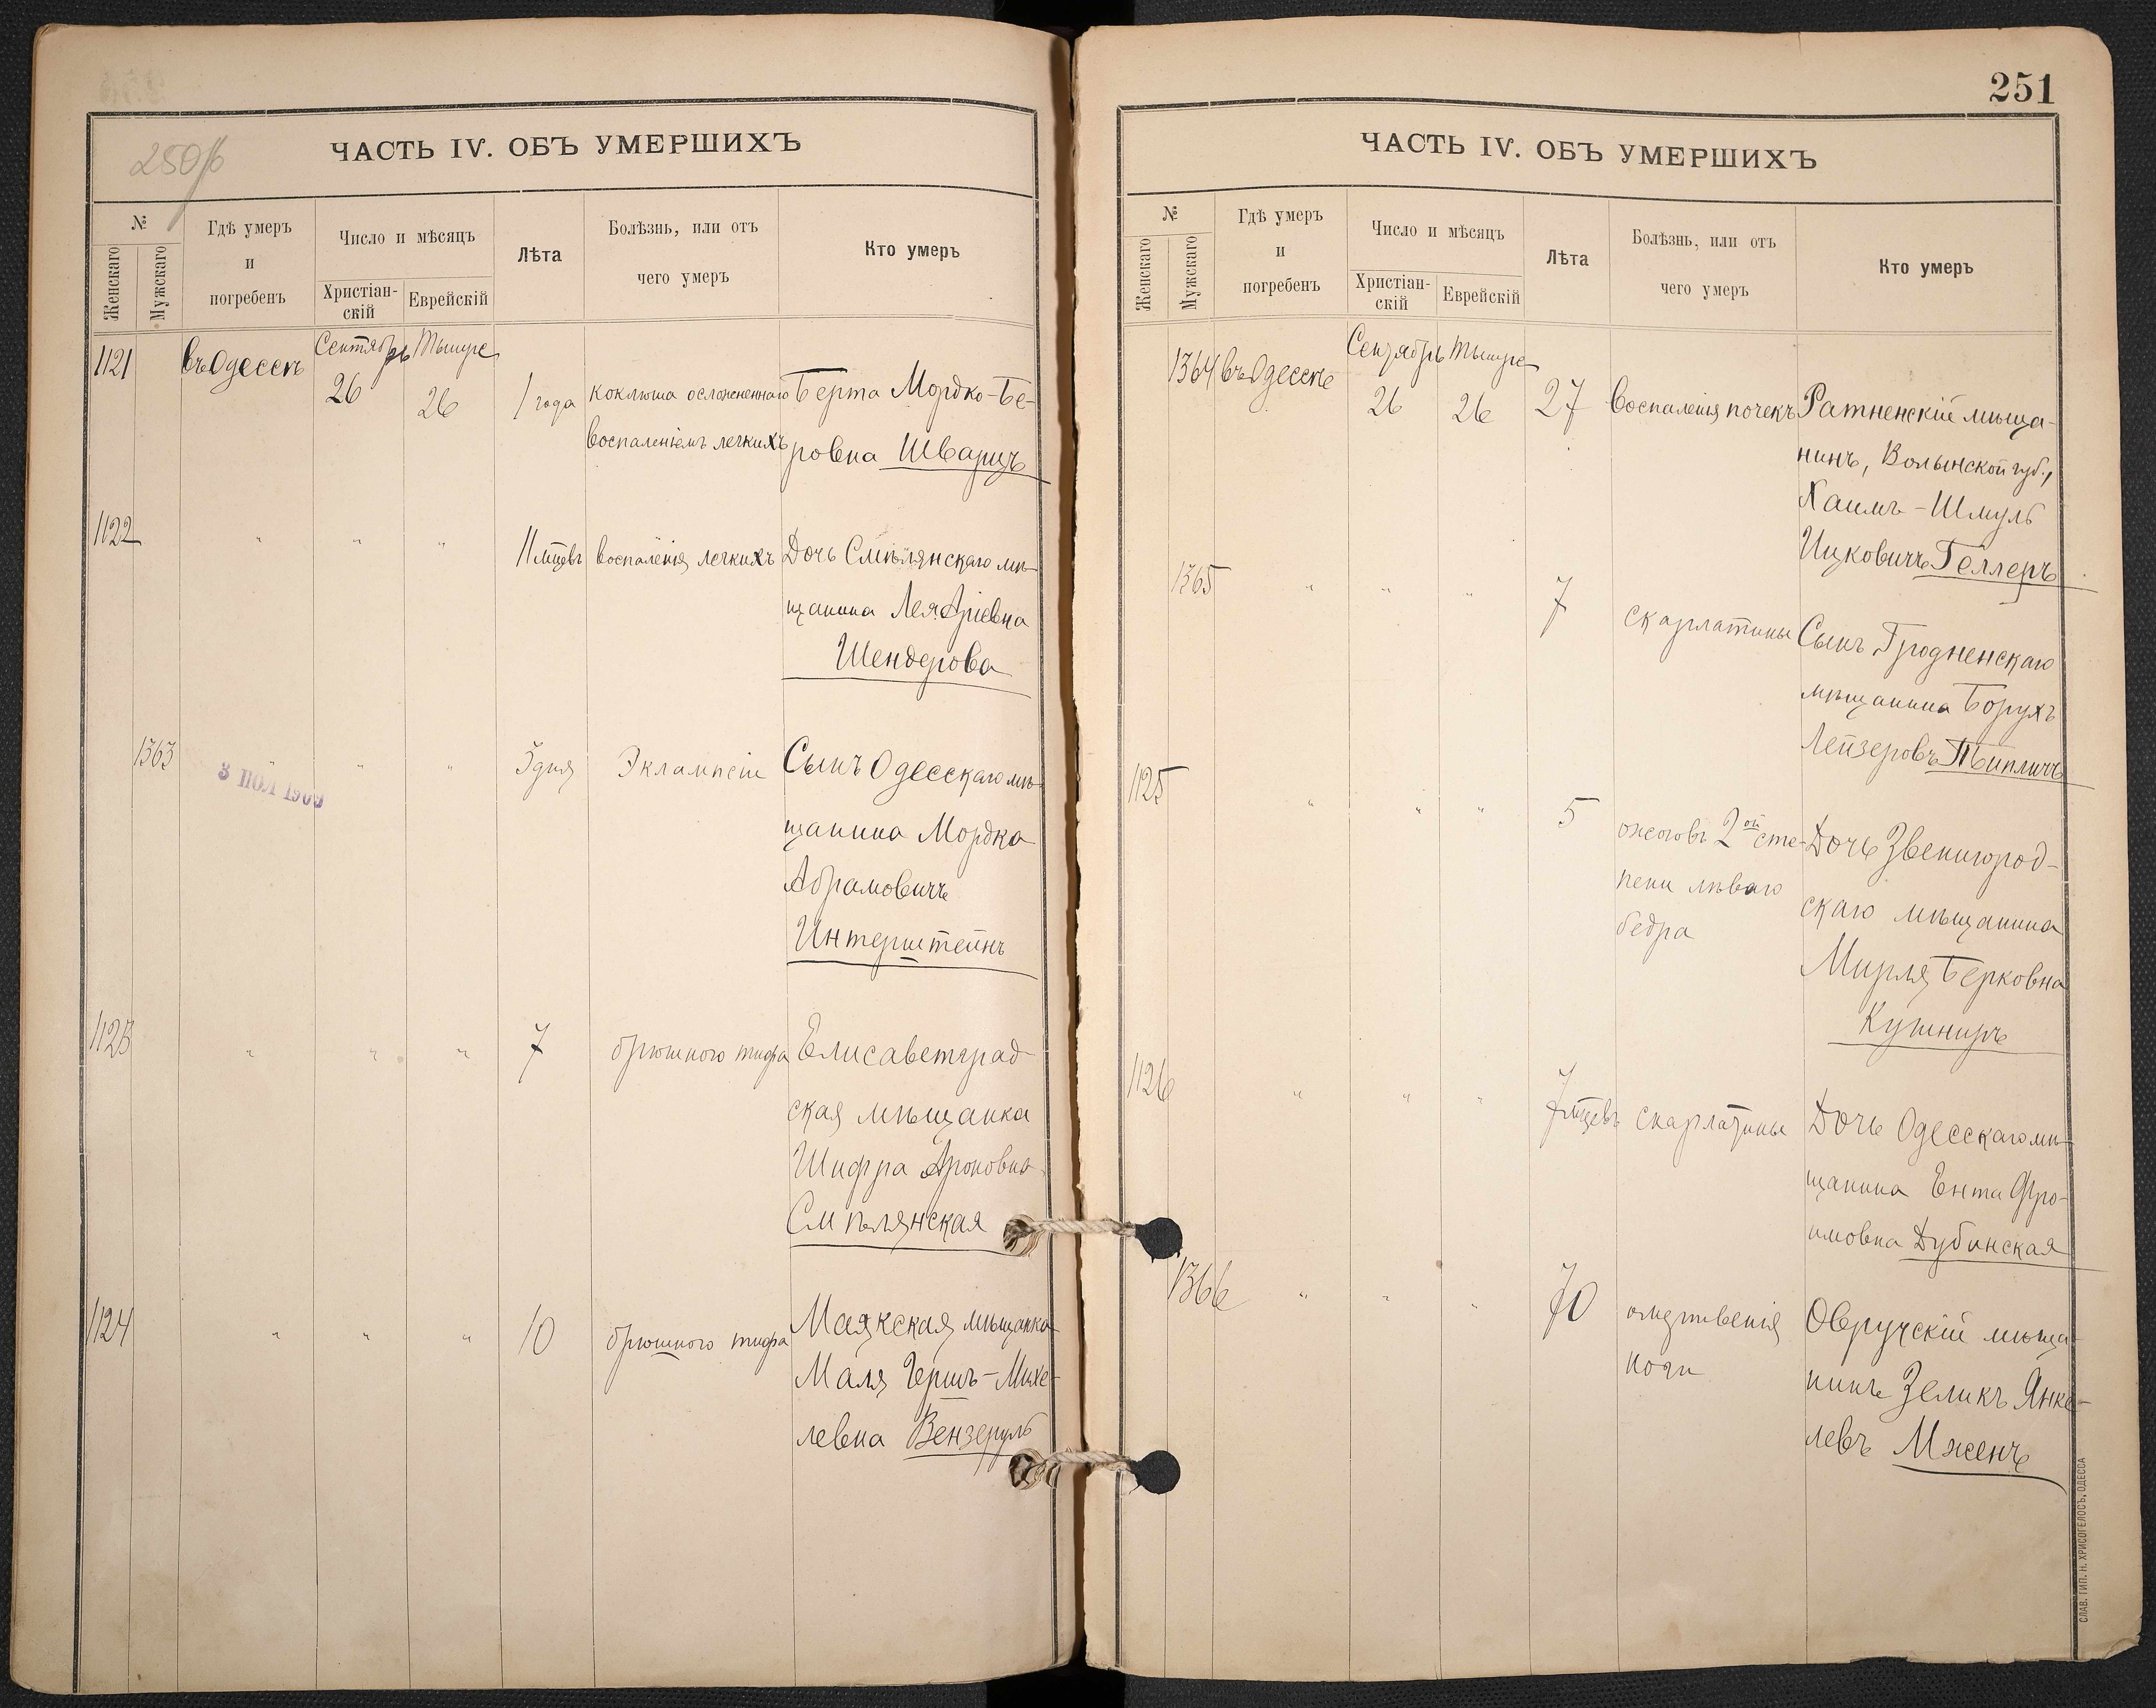 250 б
ЧАСТЬ IV. ОБЪ УМЕРШИХЪ
№
Женскаго
Мужскаго
Гдѣ умеръ
и
погребенъ
Число и мѣсяцъ
Христіан-
скій
Еврейскій
Лѣта
Болѣзнь, или отъ
чего умеръ
Кто умеръ
1121
въ Одессѣ
Сентябрь
Тышре
26
26
1 года
коклюша осложненнаго
воспаленіемъ легкихъ
Берта Мордко-Бе-
ровна Шварцъ
1122
" " "
11 мѣцевъ
воспаленія легкихъ
Дочь Смѣлянскаго мѣ-
щанина Лея Аріевна
Шендерова
1363
" " "
3 ПОЛ 1909
3 дня
Эклампсіи
Сынъ Одесскаго мѣ-
щанина Мордка
Абрамовичъ
Интерштейнъ
1123
" " "
7
брюшного тифа
Елисаветград-
ская мѣщанка
Шифра Ароновна
Смѣлянская
1124
" " "
10
брюшного тифа
Маякская мѣщанка
Маля Гершъ-Михе-
левна Вензеруль
251
ЧАСТЬ IV. ОБЪ УМЕРШИХЪ
№
Женскаго
Мужскаго
Гдѣ умеръ
и
погребенъ
Число и мѣсяцъ
Христіан-
скій
Еврейскій
Лѣта
Болѣзнь, или отъ
чего умеръ
Кто умеръ
1364
въ Одессѣ
Сентябрь
Тышре
26
26
27
воспаленія почекъ
Ратненскій мѣща-
нинъ, Волынской губ.,
Хаимъ-Шмуль
Ицковичъ Геллеръ
1365
" " "
7
скарлатины
Сынъ Гродненскаго
мѣщанина Борухъ
Лейзеровъ
1125
" " "
5
ожоговъ 2ой сте-
пени лѣваго
бедра
Дочь Звенигород-
скаго мѣщанина
Мирля Берковна
Кушниръ
1126
" " "
7 мѣцевъ
скарлатины
Дочь Одесскаго мѣ-
щанина Ента Фро-
имовна Дубинская
1366
" " "
70
омертвенія
ноги
Овручскій мѣща-
нинъ Зеликъ Янке-
левъ Мженъ
СЛАВ. ТИП. Н. ХРИСОГЕЛОСЪ, ОДЕССА